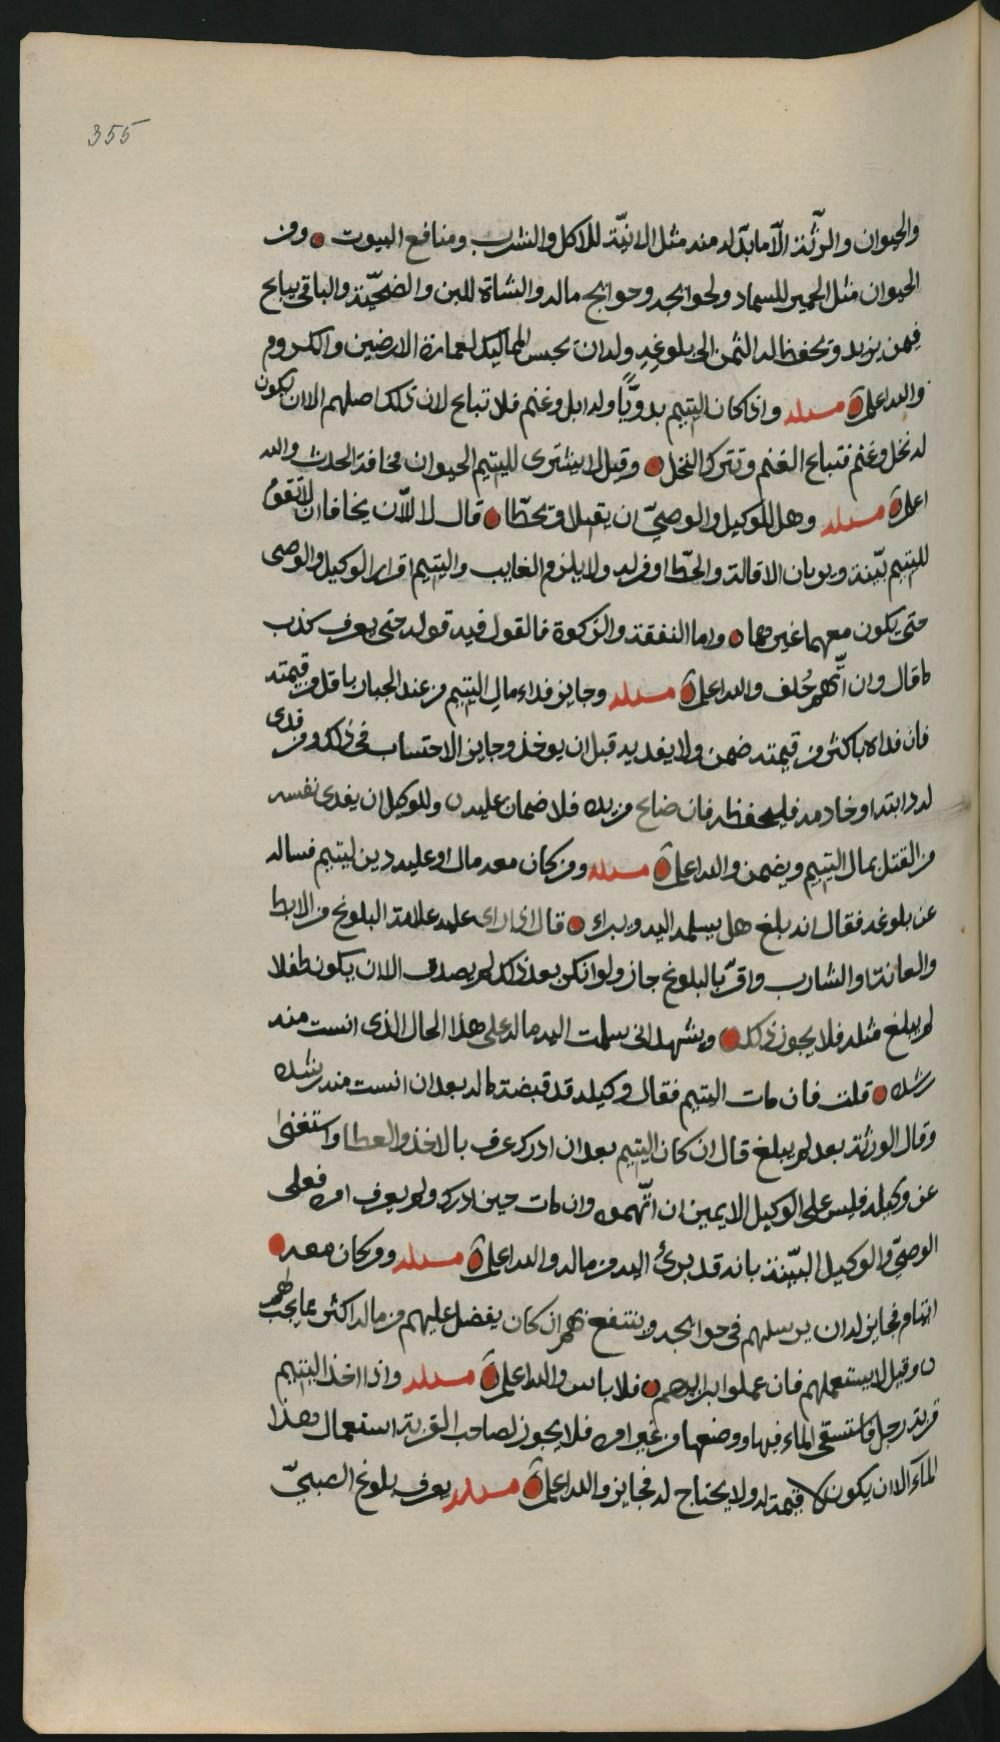 355
والحيوان والرثّة الّا ما بدّ له منه مثل الانيّة للاكل والشرب ومنافع البيوت ومن
الحيوان مثل الحمير للسماد ولحوايجه وحوايج ماله والشاة للبن والضحيّة والباقي يباع
فيمن يزيد ويحفظ له الثمن الى بلوغه وله ان يحبس المماليك لعمارة الارضين والكروم
والله اعلم مسئله واذا كان اليتيم بدويّا وله ابل وغنم فلا تباع لان ذلك اصلهم الا ان يكون
له نخل وغنم فتباع الغنم وتترك النخل وقيل لا يشترى لليتيم الحيوان مخافة الحدث والله
اعلم مسئله وهل للوكيل والوصيّ ان يقيلا ويحطّا قال لا لأن يخافا ان لا تقوم
لليتيم بيّنة ويريان الاقالة والحطّ اوفر له ولا يلزم الغايب واليتيم اقرار الوكيل والوصى
حتى يكون معهما غيرهما واما النفقة والزكوة فالقول فيه قوله حتى يعرف كذب
ما قال وان اتّهم حُلف والله اعلم مسئله وجايز فداء مال اليتيم من عند الجبار باقل من قيمته
فان فداه باكثر من قيمته ضمن ولا يفديه قبل ان يوخذ وجايز الاحتساب في ذلك ومن فدى
له دابته او خادمه فليحفظه فان ضاع من يده فلا ضمان عليه وللوكيل ان يفدى نفسه
من القتل بمال اليتيم ويضمن والله اعلم مسئله ومن كان معه مال او عليه دين ليتيم فساله
عن بلوغه فقال انه بلغ هل يسلمه اليه ويبراء قال اذا راى عليه علامة البلوغ من الابط
والعانة او الشارب واقرّ بالبلوغ جاز ولو انكر بعد ذلك لم يصدق الا ان يكون طفلا
لم يبلغ مثله فلا يجوز ذلك ويشهد انى سلمت اليه ماله على هذا الحال الذى انست منه
رشده قلت فان مات اليتيم فقال وكيله قد قبضته ماله بعد ان انست منه رشده
وقال الورثة بعد لم يبلغ قال ان كان اليتيم بعد ان ادرك عرف بالاخذ والعطا واستغنى
عن وكيله فليس على الوكيل الا يمين ان اتّهموه وان مات حين ادرك ولم يعرف امره فعلى
الوصيّ والوكيل البيّنة بانه قد برئ اليه من ماله والله اعلم مسئله ومن كان معه
ايتام فجايز له ان يرسلهم في حوايجه وينتفع بهم ان كان يفضل عليهم من ماله اكثر مما يجب لهم
وقيل لا يستعملهم فان عملوا برايهم فلا باس والله اعلم مسئله واذا اخذ اليتيم
قربة رجل فاستسقى الماء فيها ووضعها من غير امره فلا يجوز لصاحب القربة استعمال هذا
الماء الا ان يكون لا قيمة له ولا يحتاج له فجايز والله اعلم مسئله يعرف بلوغ الصبيّ